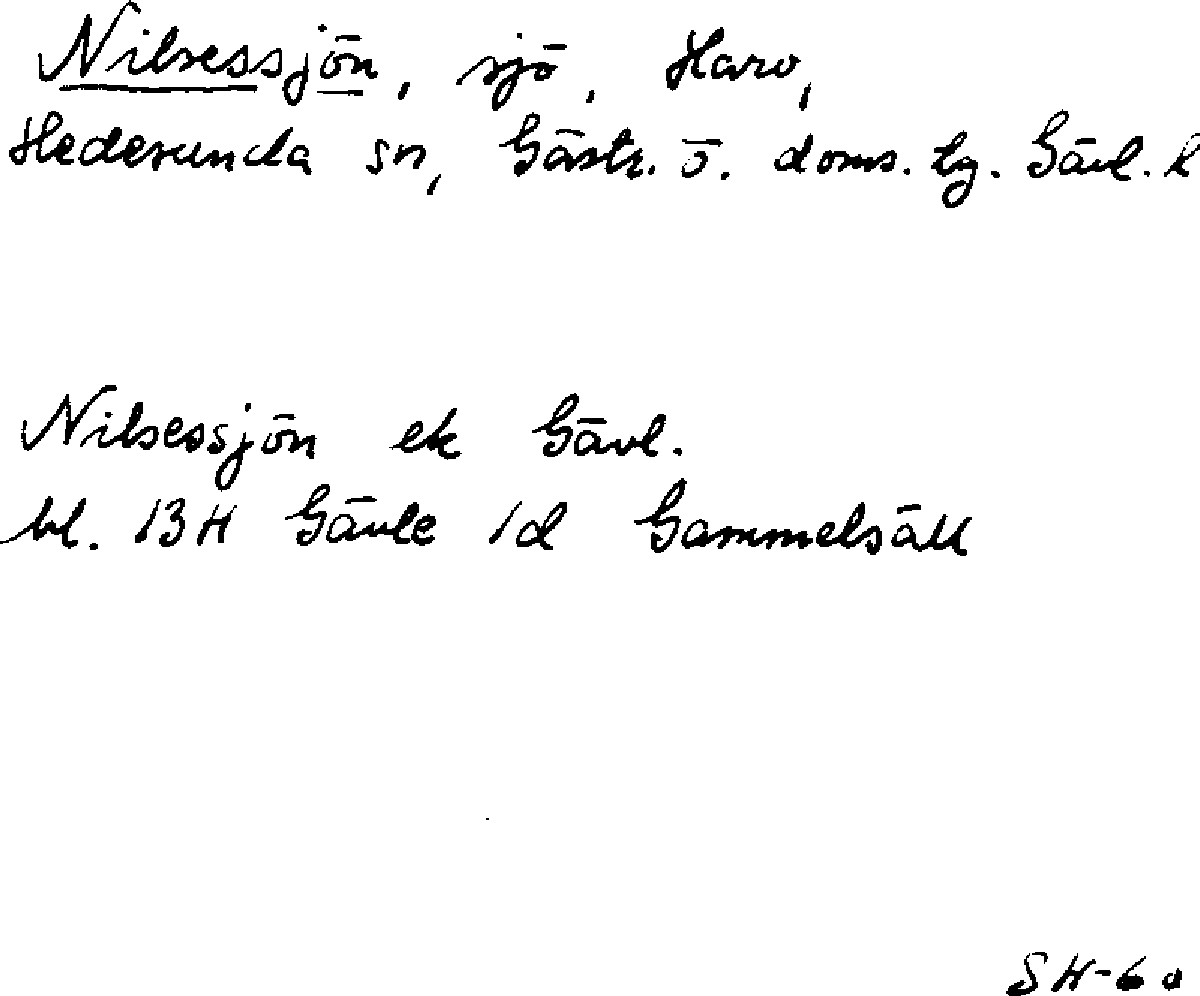 Nilsessjön, sjö, Haro,
Hedesunda sn, Gästr. ö. doms. tg. Gävl. l
Nilsessjön ek Gävl.
bl. 13H Gävle 1d Gammelsäll
SH-60